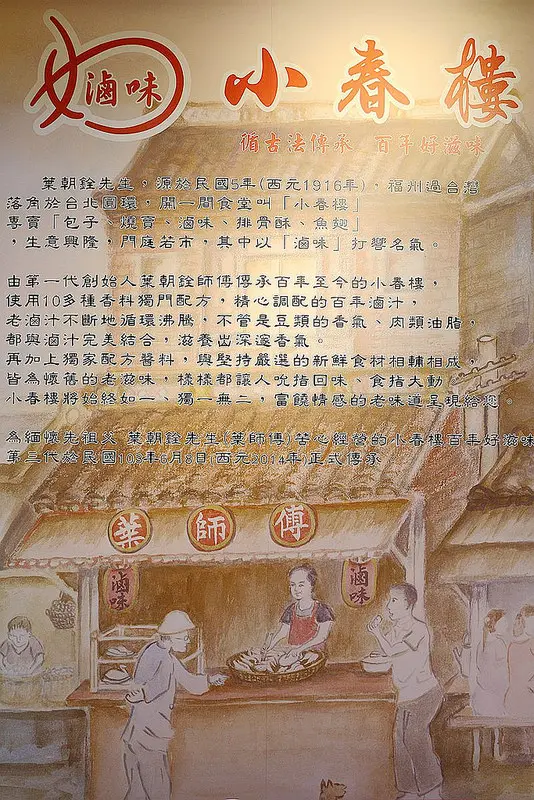 滷味 小春樓
循古法傳承 百年好滋味
葉朝銓先生，源於民國5年(西元1916年)，福州過台灣
落角於台北圓環，開一間食堂叫「小春樓」
專賣「包子、燒賣、滷味、排骨酥、魚翅」
，生意興隆，門庭若市，其中以「滷味」打響名氣。
由第一代創始人葉朝銓師傅傳承百年至今的小春樓，
使用10多種香料獨門配方，精心調配的百年滷汁，
老滷汁不斷地循環沸騰，不管是豆類的香氣、肉類油脂，
都與滷汁完美結合，滋養出深邃香氣。
再加上獨家配方醬料，與堅持嚴選的新鮮食材相輔相成，
皆為懷舊的老滋味，樣樣都讓人吮指回味、食指大動，
小春樓將始終如一、獨一無二，富饒情感的老味道呈現給您。
為緬懷先祖父 葉朝銓先生(葉師傅)苦心經營的小春樓百年好滋味
第三代於民國103年6月8日(西元2014年)正式傳承
葉師傅
滷味 滷味